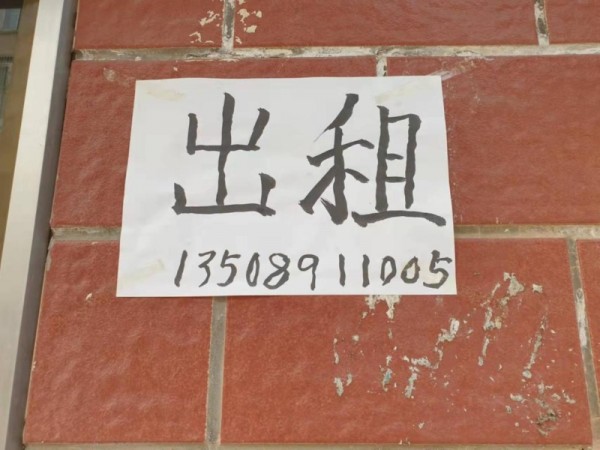 出租
13508911005